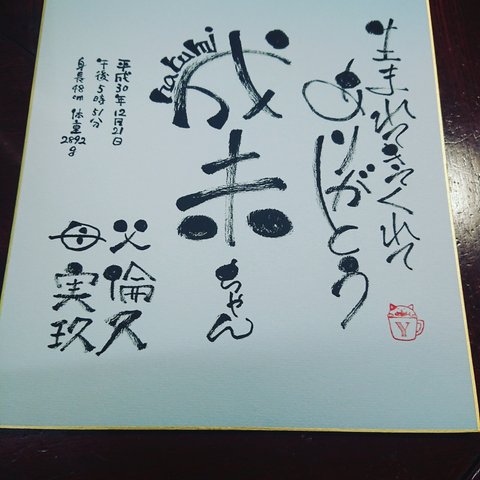 生まれてきてくれて
ありがとう
成未ちゃん
narumi
平成30年12月21日
午後5時51分
身長48cm 体重2892g
父 倫久
母 実玖
Y